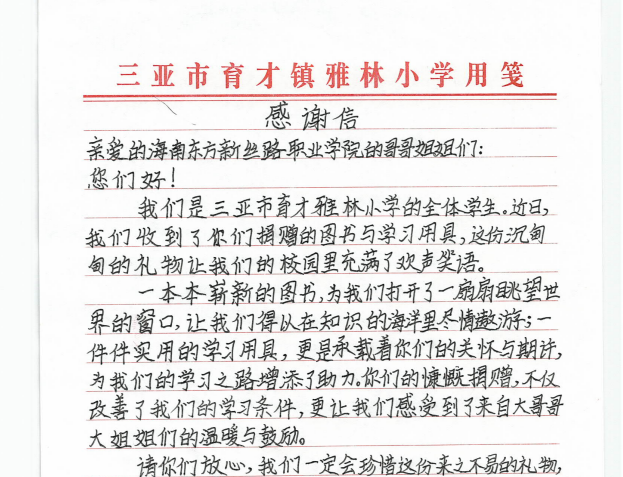 三亚市育才镇雅林小学用笺
感谢信
亲爱的海南东方新丝路职业学院的哥哥姐姐们：
您们好！
我们是三亚市育才雅林小学的全体学生。近日，
我们收到了你们捐赠的图书与学习用具，这份沉甸
甸的礼物让我们的校园里充满了欢声笑语。
一本本崭新的图书，为我们打开了一扇扇眺望世
界的窗口，让我们得以在知识的海洋里尽情遨游；一
件件实用的学习用具，更是承载着你们的关怀与期许，
为我们的学习之路增添了助力。你们的慷慨捐赠，不仅
改善了我们的学习条件，更让我们感受到了来自大哥哥
大姐姐们的温暖与鼓励。
请你们放心，我们一定会珍惜这份来之不易的礼物，